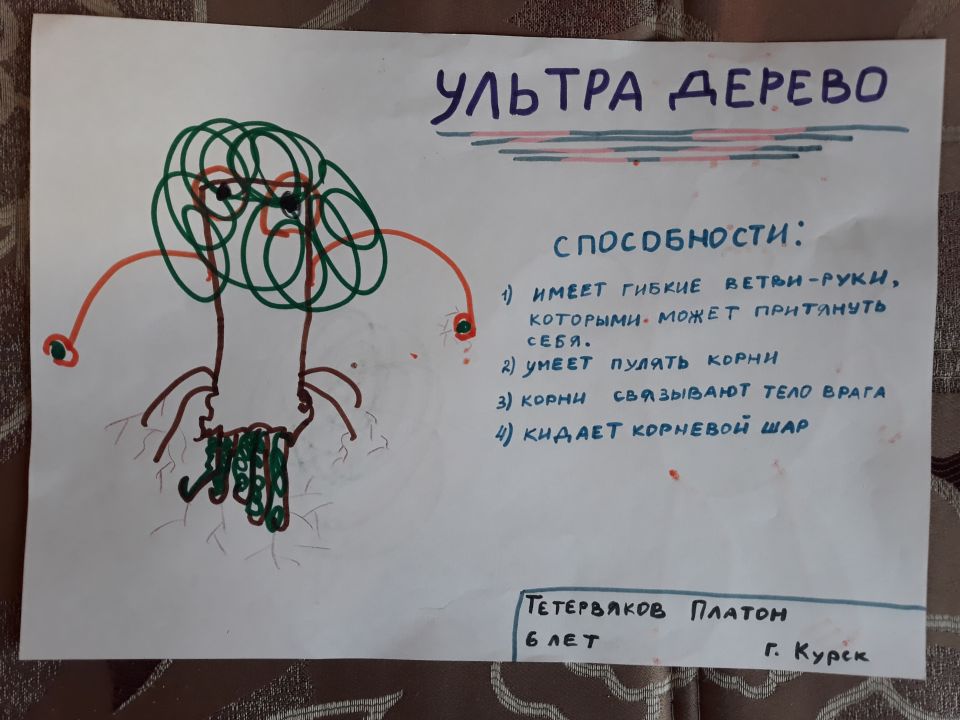 УЛЬТРА ДЕРЕВО
СПОСОБНОСТИ:
1) ИМЕЕТ ГИБКИЕ ВЕТВИ-РУКИ,
КОТОРЫМИ МОЖЕТ ПРИТЯНУТЬ
СЕБЯ.
2) УМЕЕТ ПУЛЯТЬ КОРНИ
3) КОРНИ СВЯЗЫВАЮТ ТЕЛО ВРАГА
4) КИДАЕТ КОРНЕВОЙ ШАР
ТЕТЕРВЯКОВ ПЛАТОН
6 ЛЕТ
г. Курск